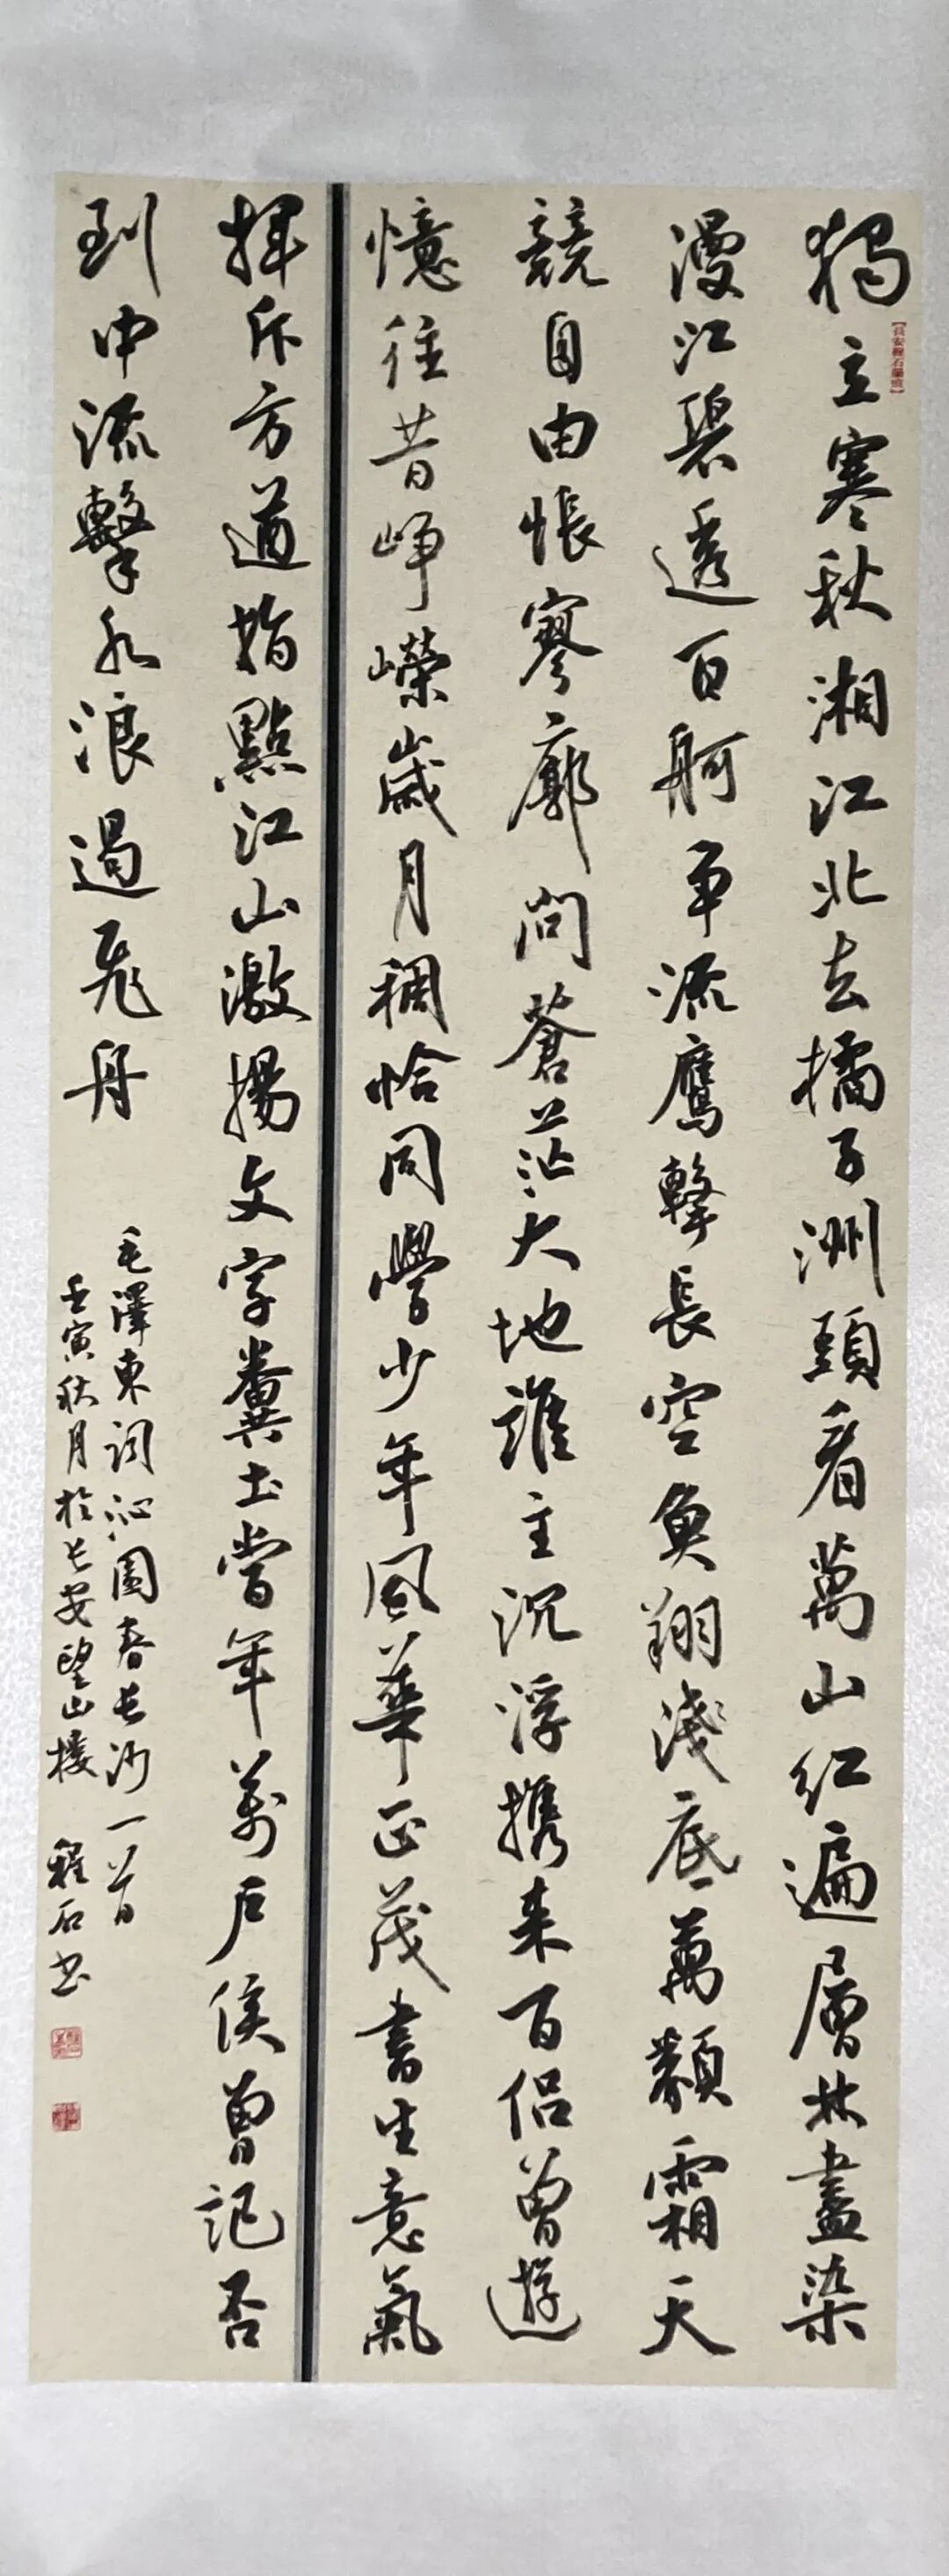 獨立寒秋湘江北去橘子洲頭看萬山紅遍層林盡染
漫江碧透百舸爭流鷹擊長空魚翔淺底萬類霜天
競自由悵寥廓問蒼茫大地誰主沉浮攜來百侶曾遊
憶往昔崢嶸歲月稠恰同學少年風華正茂書生意氣
揮斥方遒指點江山激揚文字糞土當年萬戶侯曾記否
到中流擊水浪遏飛舟
毛澤東詞沁園春長沙一首
壬寅秋月於長安望山樓 程石书